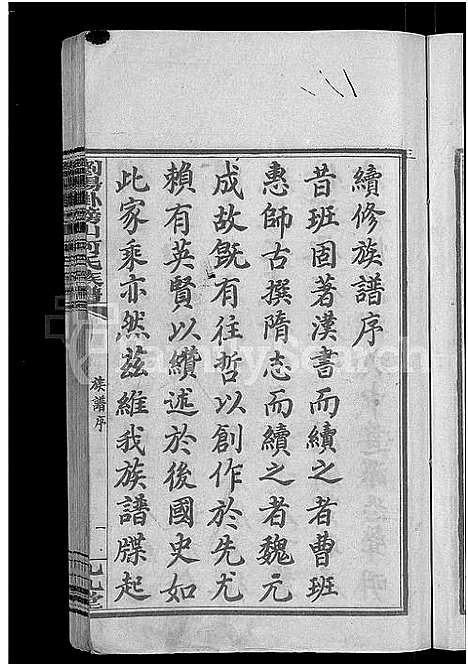 續修族譜序
昔班固著漢書而續之者曹班
惠師古撰隋志而續之者魏元
成故旣有往哲以創作於先尤
賴有英賢以纘述於後國史如
此家乘亦然茲維我族譜牒起
族譜序
一
FamilySearch